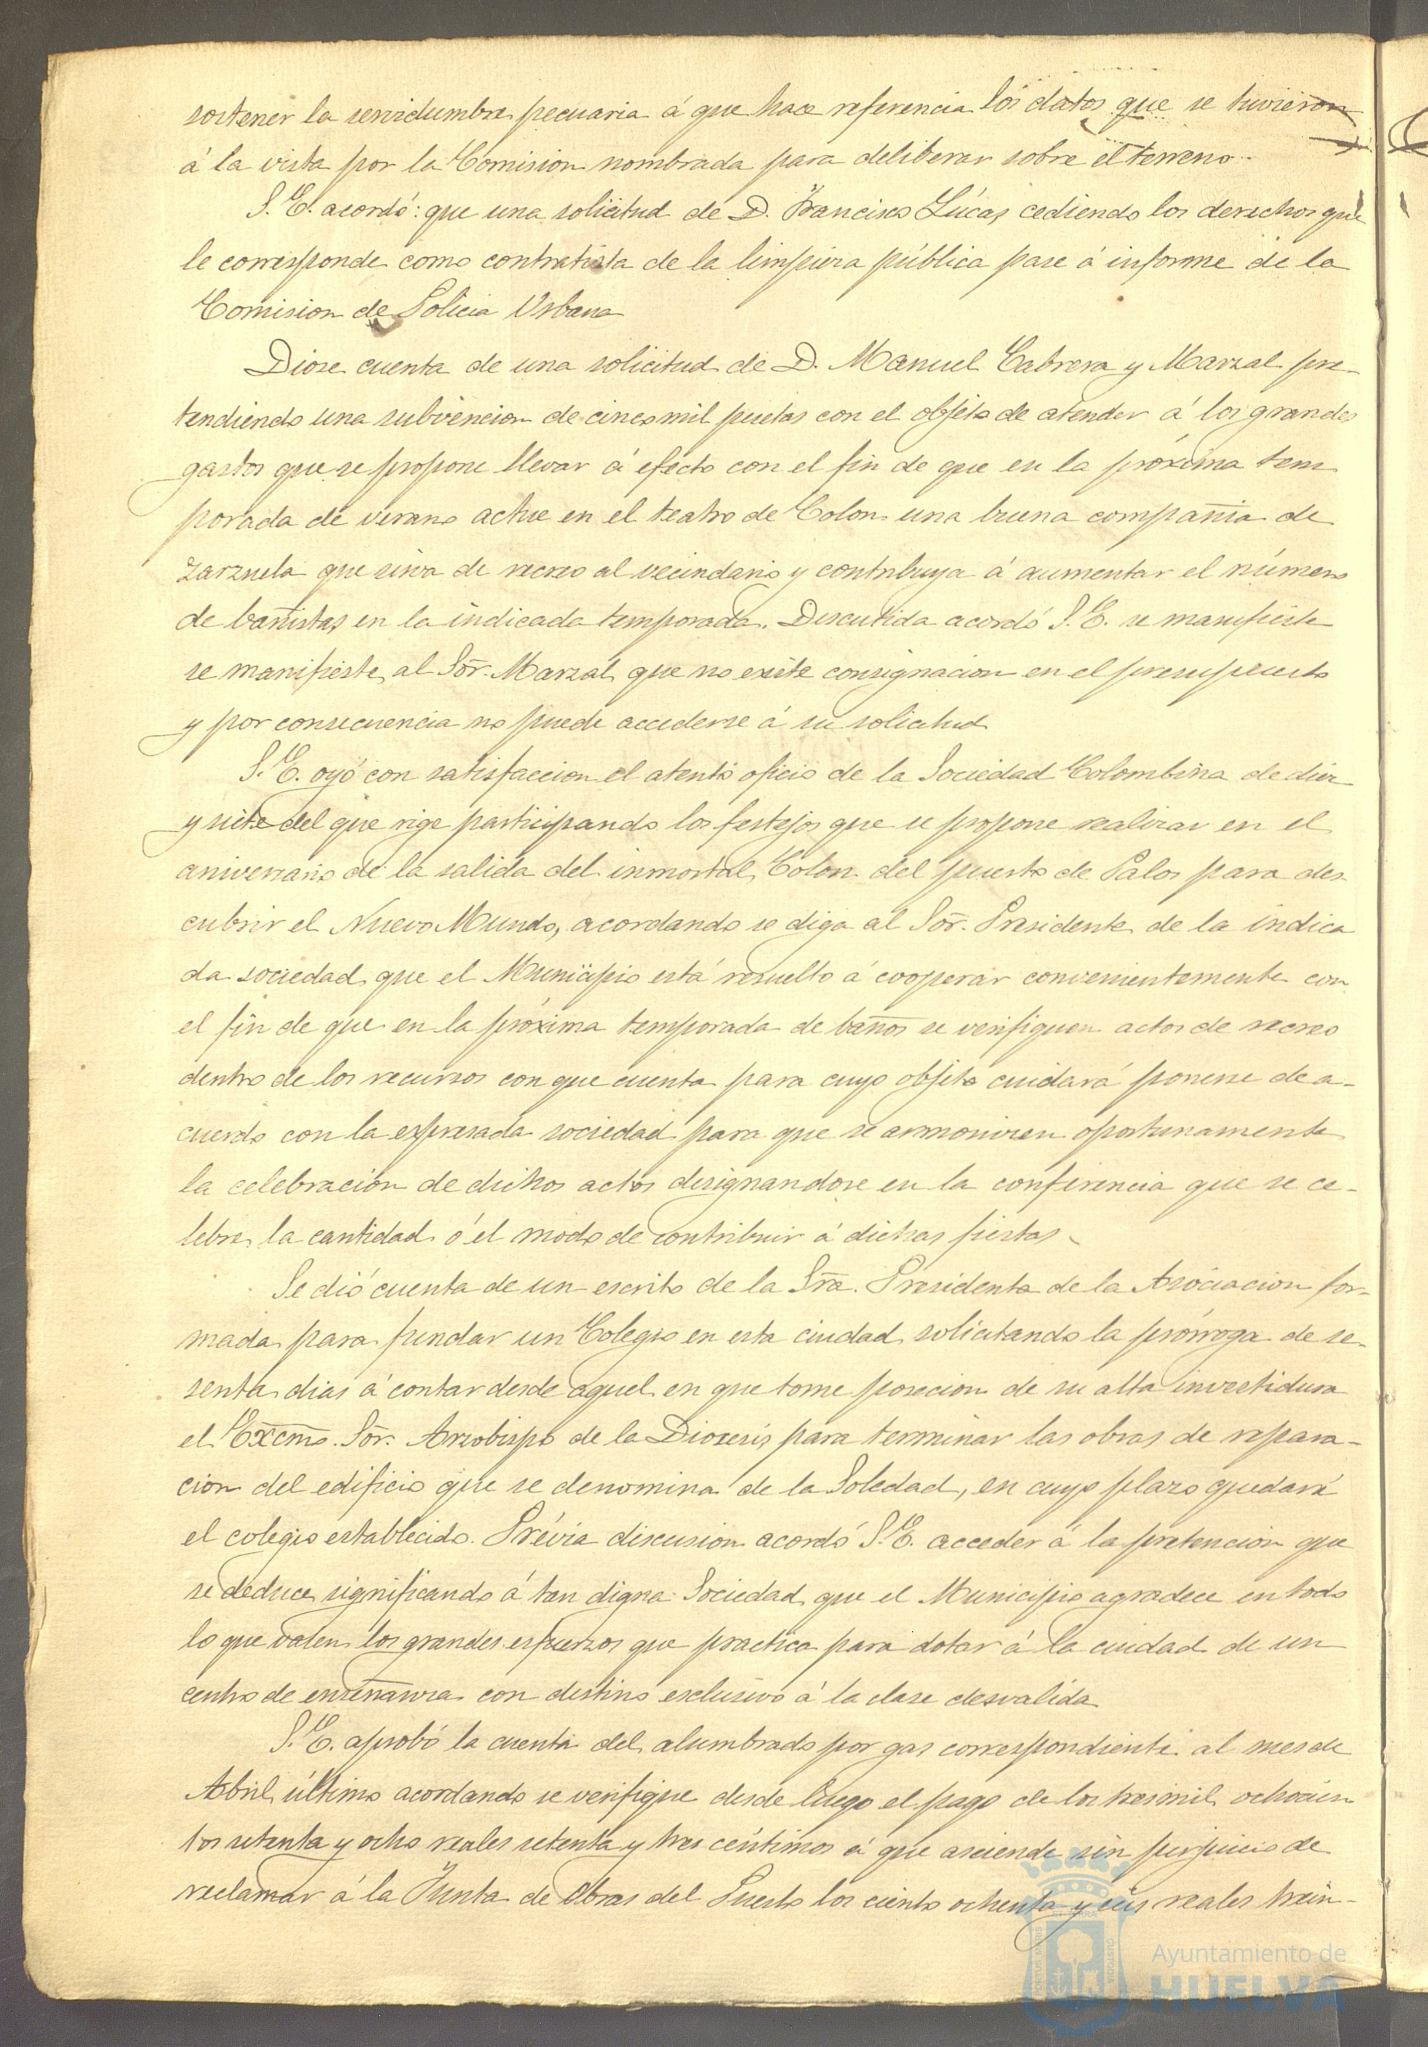 sostener la servidumbre pecuaria á que hace referencia los datos que se tuvieron
á la vista por la Comision nombrada para deliberar sobre el terreno.
S. E. acordó: que una solicitud de D. Francisco Lúcas, cediendo los derechos que
le corresponde como contratista de la limpieza pública pase á informe de la
Comision de Policia Urbana
Diose cuenta de una solicitud de D. Manuel Cabrera y Marzal pre-
tendiendo una subvencion de cinco mil pesetas con el objeto de atender á los grandes
gastos que se propone llevar á efecto con el fin de que en la próxima tem
porada de verano actue en el teatro de Colon una buena compañia de
zarzuela que sirva de recreo al vecindario y contribuya á aumentar el número
de bañistas en la indicada temporada. Discutida acordó S. E. se manifieste
se manifieste al Sor. Marzal que no existe consignacion en el presupuesto
y por consecuencia no puede accederse á su solicitud
S. E. oyó con satisfaccion el atento oficio de la Sociedad Colombina de diez
y siete del que rige participando los festejos que se propone realizar en el
aniversario de la salida del inmortal Colon del puerto de Palos para des
cubrir el Nuevo Mundo, acordando se diga al Sor. Presidente de la indica
da sociedad que el Municipio está resuelto á cooperar convenientemente con
el fin de que en la próxima temporada de baños se verifiquen actos de recreo
dentro de los recursos con que cuenta para cuyo objeto cuidará ponerse de a-
cuerdo con la expresada sociedad para que se armonicen oportunamente
la celebración de dichos actos designandose en la conferencia que se ce-
lebre, la cantidad ó el modo de contribuir á dichas fiestas.
Se dió cuenta de un escrito de la Sra. Presidenta de la Asociacion for-
mada para fundar un Colegio en esta ciudad solicitando la prórroga de se-
senta dias á contar desde aquel en que tome posecion de su alta investidura
el Excmo. Sor. Arzobispo de la Diocesis para terminar las obras de repara-
cion del edificio que se denomina de la Soledad, en cuyo plazo quedará
el colegio establecido. Prévia discusion acordó S. E. acceder á la pretencion que
se deduce, significando á tan digna Sociedad, que el Municipio agradece en todo
lo que valen los grandes esfuerzos que practica para dotar á la ciudad de un
centro de enseñanza con destino esclusivo á la clase desvalida
S. E. aprobó la cuenta del alumbrado por gas correspondiente al mes de
Abril último acordando se verifique desde luego el pago de los tresmil ochocien
tos setenta y ocho reales setenta y tres céntimos á que asciende sin perjuicio de
reclamar á la Junta de Obras del Puerto los ciento ochenta y seis reales trein-
Ayuntamiento de
HUELVA